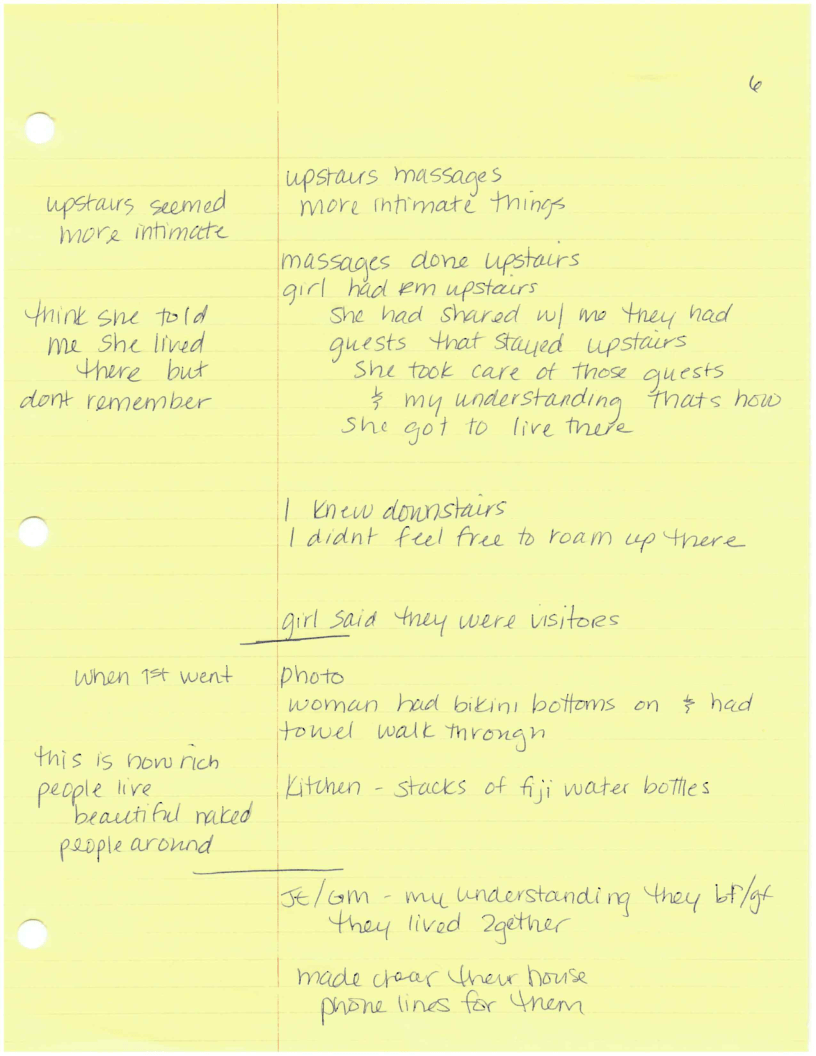 6
upstairs massages
more intimate things
upstairs seemed
more intimate
massages done upstairs
girl had rm upstairs
think she told
me she lived
there but
dont remember
she had shared w/ me they had
guests that stayed upstairs
she took care of those guests
& my understanding thats how
she got to live there
I knew downstairs
I didnt feel free to roam up there
girl said they were visitors
when 1st went
photo
woman had bikini bottoms on & had
towel walk through
this is how rich
people live
beautiful naked
people around
Kitchen - stacks of fiji water bottles
JE/GM - my understanding they bf/gf
they lived 2gether
made clear their house
phone lines for them